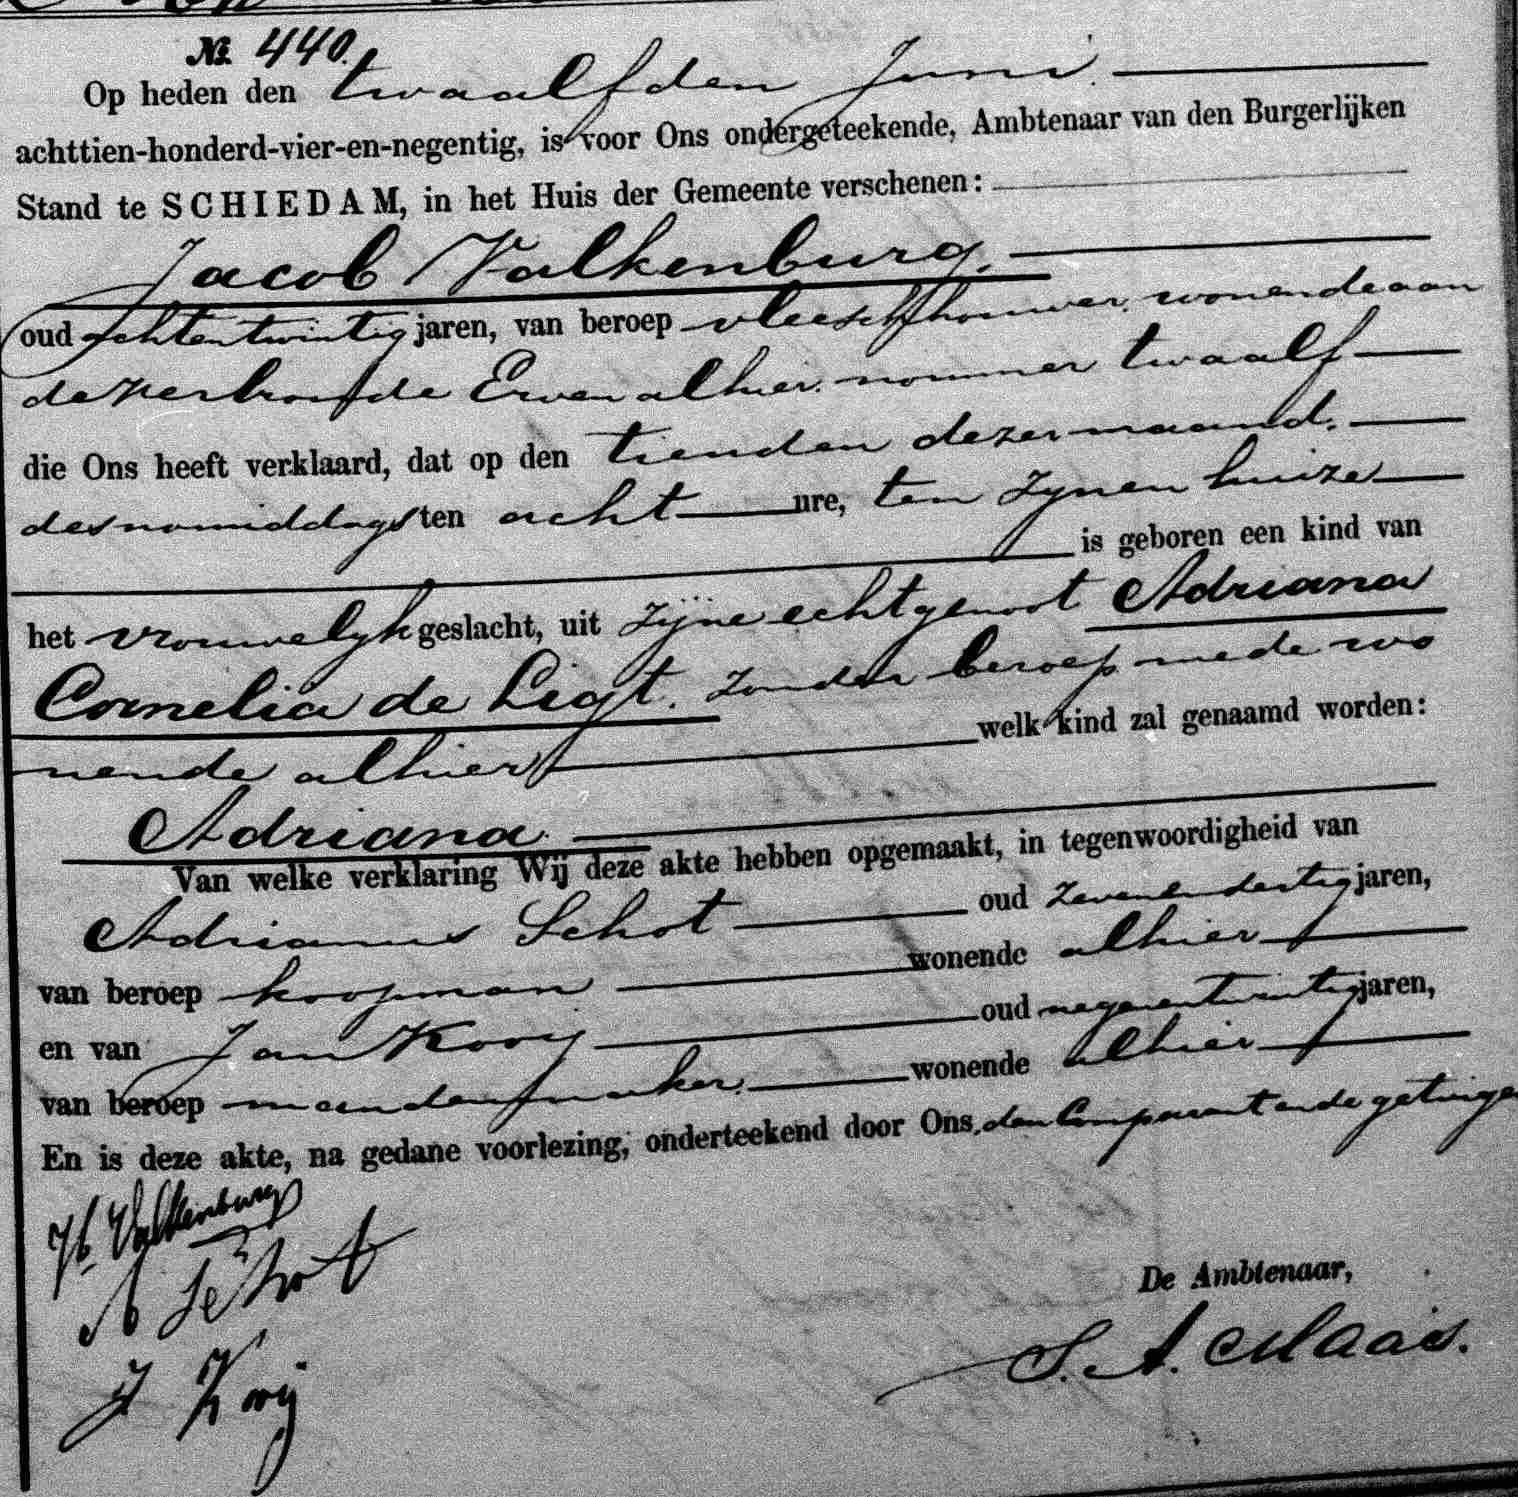 No. 440.
Op heden den twaalfden Juni
achttien-honderd-vier-en-negentig, is voor Ons ondergeteekende, Ambtenaar van den Burgerlijken
Stand te SCHIEDAM, in het Huis der Gemeente verschenen:
Jacob Valkenburg.
oud achtentwintig jaren, van beroep vleeschhouwer, wonende aan
de verbrande Erven alhier nommer twaalf
die Ons heeft verklaard, dat op den tienden dezer maand,
des namiddags ten acht ure, ten zijnen huize
is geboren een kind van
het vrouwelijk geslacht, uit zijne echtgenoot Adriana
Cornelia de Ligt. zonder beroep mede wo
nende alhier welk kind zal genaamd worden:
Adriana.
Van welke verklaring Wij deze akte hebben opgemaakt, in tegenwoordigheid van
Adrianus Schot oud zevenendertig jaren,
van beroep koopman wonende alhier
en van Jan Kooij oud negenentwintig jaren,
van beroep mandenmaker. wonende alhier
En is deze akte, na gedane voorlezing, onderteekend door Ons, den Comparant en de getuigen
Jb. Valkenburg
A Schot
J Kooij
De Ambtenaar,
S. A. Maas.